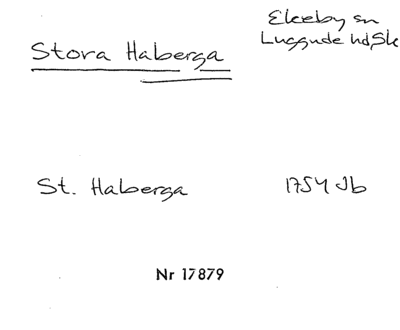 Stora Haberga
Ekeby sn
Luggude hd, Sk
St. Haberga 1754 Jb
Nr 17879